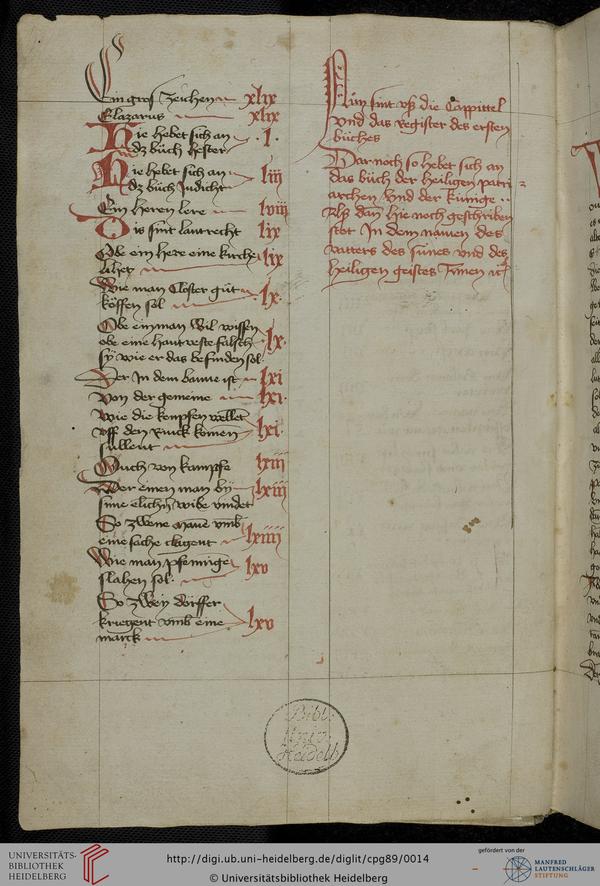 Ein gros zeichen xlix
Elazarus xlix
Hie hebet sich an
dz buch hester l
Hie hebet sich an
dz buch Judicht liii
Ein heren lere lviii
Dis sint lantrecht lix
Obe ein here eine kirche
lihet lix
Wie man closter gut
köffen sol lx
Obe ein man wil wissen
obe eine hantveste falsch
sy wie er das befinden sol lx
Der In dem banne ist lxi
Von der gemeine lxi
Wie die kempfen wellet
uff den rinck komen
sullent lxi
Ouch von kampfe lxiii
Wer einen man by
sime elichē wibe vindet lxiii
So zwene man vmb
eine sache clagent lxiiii
Wie man pfennige
slahen sol lxv
So zwey dörffer
kriegent vmb eine
marck lxv
Nun sint vß die Cappittel
vnd das register des ersten
buches
Dar noch so hebet sich an
das buch der heiligen patri
archen vnd der kunige
Als dan hie noch geschriben
stot In dem namen des
vatters des sunes vnd des
heiligen geistes Amen
Bibl.
Univ.
Heidelb.
UNIVERSITÄTS-
BIBLIOTHEK
HEIDELBERG
http://digi.ub.uni-heidelberg.de/diglit/cpg89/0014
© Universitätsbibliothek Heidelberg
gefördert von der
MANFRED
LAUTENSCHLÄGER
STIFTUNG